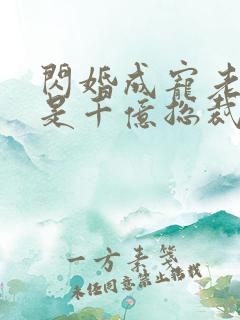 閃婚成寵老
是千億總裁
一方素箋
未經同意禁止轉載